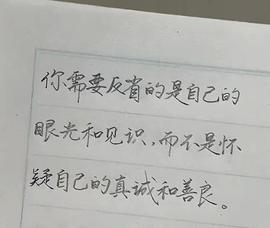 你需要反省的是自己的
眼光和见识,而不是怀
疑自己的真诚和善良。